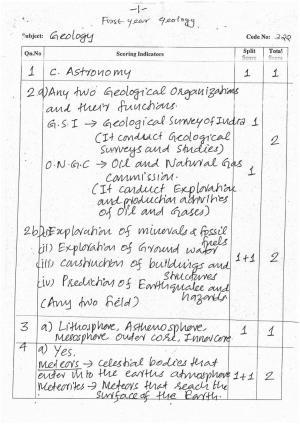 -1-
First year Geology
Subject: Geology Code No: 220
Qn.No Scoring Indicators Split Score Total Score
1 C. Astronomy 1 1
2 a) Any two Geological Organizations
and their functions.
G.S.I → Geological Survey of India 1
(It conduct Geological 2
surveys and studies)
O.N.G.C → Oil and Natural Gas
Commission. 1
(It conduct Exploration
and production activities
of Oil and Gases)
2 b) i) Exploration of minerals & fossil
fuels
ii) Exploration of Ground water
iii) Construction of buildings and 1+1 2
Structures
iv) Prediction of Earthquake and
hazards
(Any two field)
3 a) Lithosphere, Asthenosphere 1 1
Mesosphere outer core, Inner core
4 a) Yes.
Meteors → celestial bodies that
enter into the earths atmosphere 1+1 2
Meteorites → Meteors that reach the
surface of the Earth.